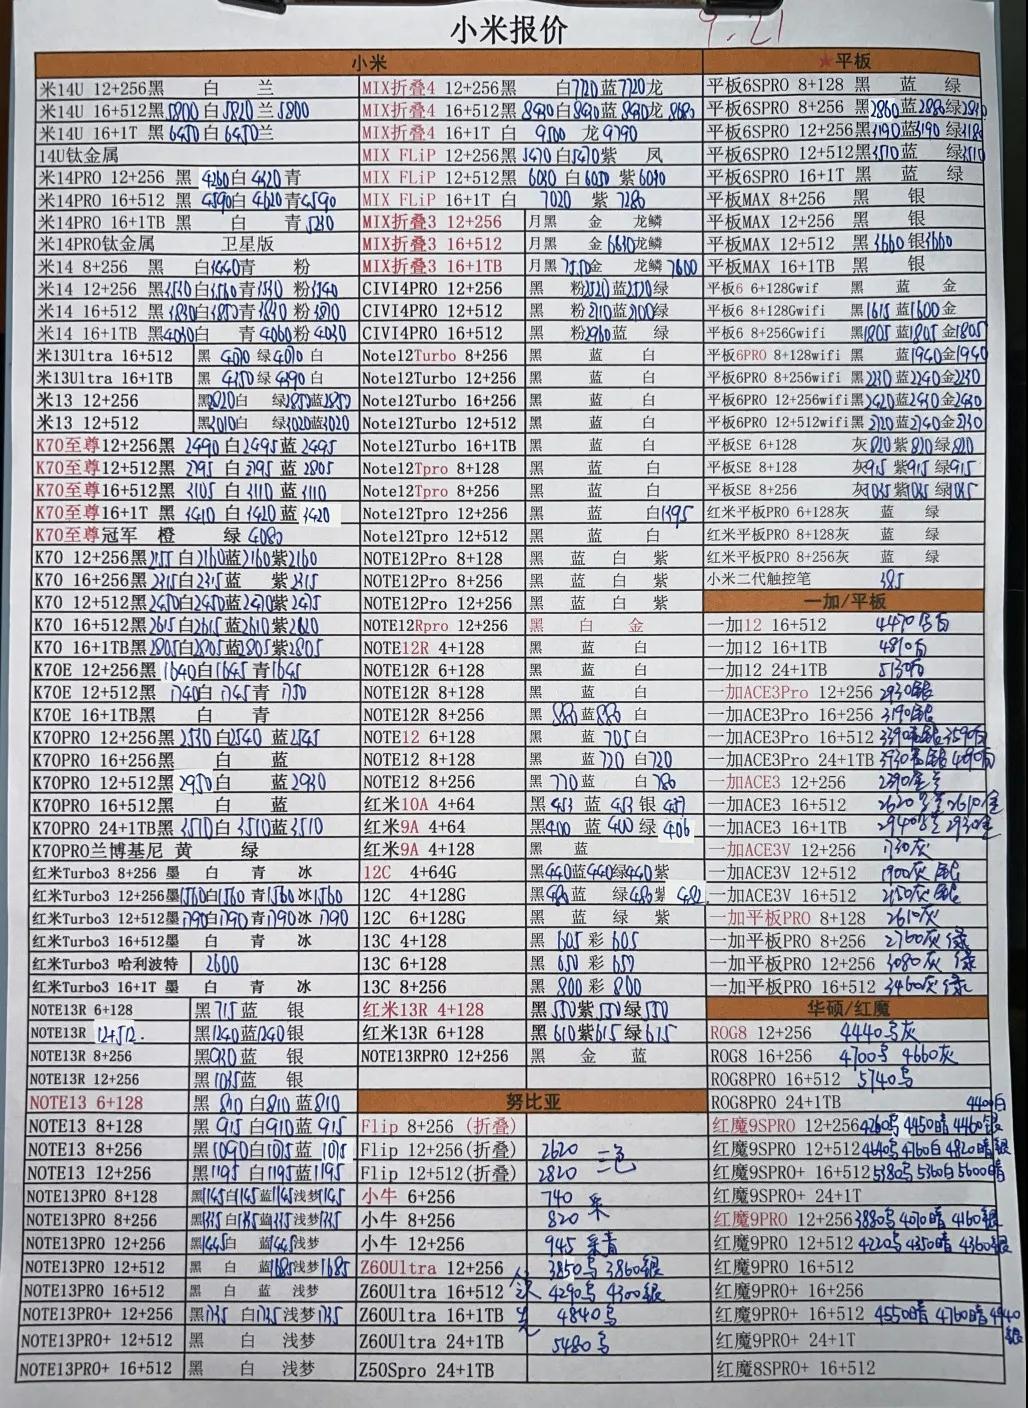 小米报价 9.21
小米
米14U 12+256黑 白 兰
米14U 16+512黑5800 白5820兰5800
米14U 16+1T 黑6450 白6450兰
14U钛金属
米14PRO 12+256 黑 4260白4320青
米14PRO 16+512 黑 4590白4620青4590
米14PRO 16+1TB黑 白 青
米14PRO钛金属 卫星版
米14 8+256 黑 白 青 粉
米14 12+256 黑 白 青 粉
米14 16+512 黑 白 青 粉
米14 16+1TB黑 白 青 粉
米13Ultra 16+512 黑 绿 白
米13Ultra 16+1TB 黑 绿 白
米13 12+256 黑 白 绿 蓝
米13 12+512 黑 白 绿 蓝
K70至尊12+256黑 2490 白2495蓝2495
K70至尊12+512黑 2795 白2795蓝2805
K70至尊16+512黑 3105 白3110蓝3110
K70至尊16+1T 黑 3410 白3420蓝3420
K70至尊冠军 橙 绿 4080
K70 12+256黑2155白2160蓝2160紫2160
K70 16+256黑2315白2315蓝 紫2315
K70 12+512黑 白 蓝 紫
K70 16+512黑2615白2615蓝2610紫2620
K70 16+1TB黑2805白2805蓝2805紫2805
K70E 12+256黑1640白1645青1645
K70E 12+512黑 1740白1745青1750
K70E 16+1TB黑 白 青
K70PRO 12+256黑2530白2540 蓝2545
K70PRO 16+256黑 白 蓝
K70PRO 12+512黑2950白 蓝2930
K70PRO 16+512黑 白 蓝
K70PRO 24+1TB黑3510白3510蓝3510
K70PRO兰博基尼 黄 绿
红米Turbo3 8+256 墨 白 青 冰
红米Turbo3 12+256墨1560白1560青1560冰1560
红米Turbo3 12+512墨1790白1790青1790冰1790
红米Turbo3 16+512墨 白 青 冰
红米Turbo3 哈利波特 2600
红米Turbo3 16+1T 墨 白 青 冰
NOTE13R 6+128 黑715蓝 银
NOTE13R 12+512. 黑1240蓝1240银
NOTE13R 8+256 黑930蓝 银
NOTE13R 12+256 黑1035蓝 银
NOTE13 6+128 黑 810 白810 蓝810
NOTE13 8+128 黑 915 白910蓝 915
NOTE13 8+256 黑 白 蓝
NOTE13 12+256 黑1195 白1195 蓝1195
NOTE13PRO 8+128 黑 白 蓝 浅梦
NOTE13PRO 8+256 黑 白 蓝 浅梦
NOTE13PRO 12+256 黑1445白 蓝1445浅梦
NOTE13PRO 12+512 黑 白 蓝1685浅梦1685
NOTE13PRO 16+512 黑 白 蓝 浅梦
NOTE13PRO+ 12+256 黑1735 白1735浅梦1735
NOTE13PRO+ 12+512 黑 白 浅梦
NOTE13PRO+ 16+512 黑 白 浅梦
MIX折叠4 12+256黑 白7720蓝7720龙
MIX折叠4 16+512黑 白 蓝 龙
MIX折叠4 16+1T 白 9500 龙9790
MIX FLiP 12+256黑 5470白5470紫 凤
MIX FLiP 12+512黑 白 紫
MIX FLiP 16+1T 白 7020 紫 7280
MIX折叠3 12+256 月黑 金 龙鳞
MIX折叠3 16+512 月黑 金 龙鳞
MIX折叠3 16+1TB 月黑 金 龙鳞 7600
CIVI4PRO 12+256 黑 粉 蓝 绿
CIVI4PRO 12+512 黑 粉 蓝 绿
CIVI4PRO 16+512 黑 粉 蓝 绿
Note12Turbo 8+256 黑 蓝 白
Note12Turbo 12+256 黑 蓝 白
Note12Turbo 16+256 黑 蓝 白
Note12Turbo 12+512 黑 蓝 白
Note12Turbo 16+1TB 黑 蓝 白
Note12Tpro 8+128 黑 蓝 白
Note12Tpro 8+256 黑 蓝 白
Note12Tpro 12+256 黑 蓝 白1395
Note12Tpro 12+512 黑 蓝 白
NOTE12Pro 8+128 黑 蓝 白 紫
NOTE12Pro 8+256 黑 蓝 白 紫
NOTE12Pro 12+256 黑 蓝 白 紫
NOTE12Rpro 12+256 黑 白 金
NOTE12R 4+128 黑 蓝 白
NOTE12R 6+128 黑 蓝 白
NOTE12R 8+128 黑 蓝 白
NOTE12R 8+256 黑 880蓝880 白
NOTE12 6+128 黑 蓝 705白
NOTE12 8+128 黑 蓝 720 白720
NOTE12 8+256 黑 770 蓝 白 780
红米10A 4+64 黑453 蓝 453 银 457
红米9A 4+64 黑400 蓝 400 绿 406
红米9A 4+128 黑 蓝
12C 4+64G 黑440蓝440绿440紫
12C 4+128G 黑 蓝 绿 紫
12C 6+128G 黑 蓝 绿 紫
13C 4+128 黑 605 彩 605
13C 6+128 黑 650 彩 650
13C 8+256 黑 800 彩 800
红米13R 4+128 黑550紫550绿550
红米13R 6+128 黑 610紫615绿615
NOTE13RPRO 12+256 黑 金 蓝
努比亚
Flip 8+256 (折叠)
Flip 12+256(折叠) 2620 三色
Flip 12+512(折叠) 2820
小牛 6+256 740
小牛 8+256 820
小牛 12+256 945
Z60Ultra 12+256 3850乌 3860银
Z60Ultra 16+512 4290乌 4300银
Z60Ultra 16+1TB 4840乌
Z60Ultra 24+1TB 5480乌
Z50Spro 24+1TB
★平板
平板6SPRO 8+128 黑 蓝 绿
平板6SPRO 8+256 黑2860蓝2880绿
平板6SPRO 12+256黑3190蓝3190 绿3185
平板6SPRO 12+512黑3510蓝 绿3510
平板6SPRO 16+1T 黑 蓝 绿
平板MAX 8+256 黑 银
平板MAX 12+256 黑 银
平板MAX 12+512 黑 3660 银3660
平板MAX 16+1TB 黑 银
平板6 6+128Gwif 黑 蓝 金
平板6 8+128Gwifi 黑1615 蓝1600金
平板6 8+256Gwifi 黑1805 蓝1805 金1805
平板6PRO 8+128wifi 黑 蓝1940金1940
平板6PRO 8+256wifi 黑2230蓝2240金2230
平板6PRO 12+256wifi黑2420蓝2430金2430
平板6PRO 12+512wifi黑2720蓝2740金2730
平板SE 6+128 灰820紫820绿820
平板SE 8+128 灰915 紫915 绿915
平板SE 8+256 灰1035紫1035绿1035
红米平板PRO 6+128灰 蓝 绿
红米平板PRO 8+128灰 蓝 绿
红米平板PRO 8+256灰 蓝 绿
小米二代触控笔 385
一加/平板
一加12 16+512 4470
一加12 16+1TB 4810
一加12 24+1TB 5130
一加ACE3Pro 12+256 2930
一加ACE3Pro 16+256 3190
一加ACE3Pro 16+512
一加ACE3Pro 24+1TB
一加ACE3 12+256 2390
一加ACE3 16+512
一加ACE3 16+1TB
一加ACE3V 12+256 1730灰
一加ACE3V 12+512 1900灰
一加ACE3V 16+512 2150灰
一加平板PRO 8+128 2610灰
一加平板PRO 8+256 2760灰 绿
一加平板PRO 12+256 3080灰 绿
一加平板PRO 16+512 3460灰绿
华硕/红魔
ROG8 12+256 4440乌灰
ROG8 16+256 4700乌 4660灰
ROG8PRO 16+512 5740乌
ROG8PRO 24+1TB
4400白
红魔9SPRO 12+256 4260乌 4450暗 4460银
红魔9SPRO 12+512 4640乌 4760白 4820暗银
红魔9SPRO+ 16+512 5380乌 5360白 5600暗
红魔9SPRO+ 24+1T
红魔9PRO 12+256 3880乌 4070暗 4160银
红魔9PRO 12+512 4220乌 4350暗 4360银
红魔9PRO 16+512
红魔9PRO+ 16+256
红魔9PRO+ 16+512 4550暗 4760暗 4940银
红魔9PRO+ 24+1T
红魔8SPRO+ 16+512